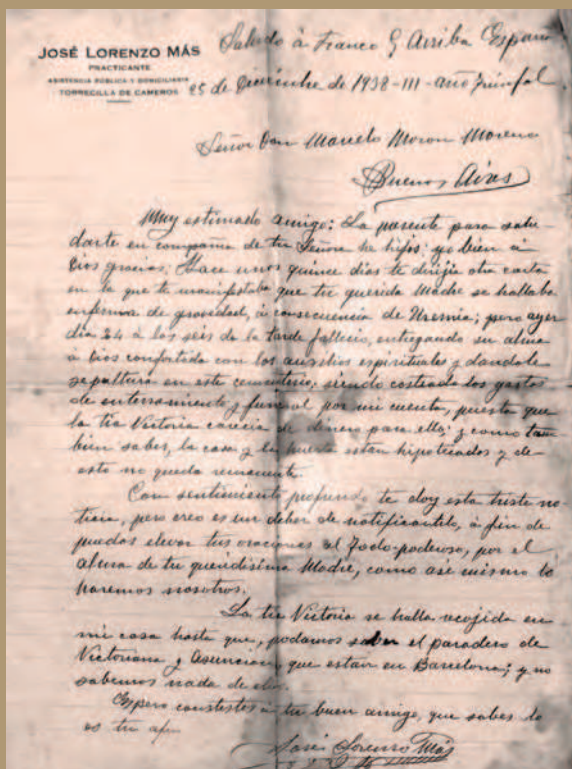 JOSÉ LORENZO MÁS
PRACTICANTE
ASISTENCIA PÚBLICA Y DOMICILIARIA
TORRECILLA DE CAMEROS
Saludo á Franco y Arriba España
25 de Diciembre de 1938-III-año triunfal.
Señor Don Marcelo Moron Moreno
Buenos Aires
Muy estimado amigo: La presente para salu-
darte en compañia de tu Señora he hijos; yo bien á
Dios gracias. Hace unos quince días te dirijía otra carta
en la que te manifestaba que tu querida Madre se hallaba
enferma de gravedad, á consecuencia de Uremia; pero ayer
día 24 á las seis de la tarde fallecio, entregando su alma
á Dios confortada con los auxilios espirituales y dandole
sepultura en este cementerio; siendo costeado los gastos
de enterramiento y funeral por mi cuenta, puesta que
la tia Victoria carecia de dinero para ello; y como tam-
bien sabes, la casa y la huerta estan hipotecados y de
esto no queda remanente.
Con sentimiento profundo te doy esta triste no-
ticia, pero creo es un deber de notificartelo, á fin de
puedas elevar tus oraciones al Todo-poderoso, por el
alma de tu queridisima Madre, como asi mismo lo
haremos nosotros.
La tia Victoria se halla recojida en
mi casa hasta que, podamos saber el paradero de
Victoriana y Asuncion, que estan en Barcelona; y no
sabemos nada de ellos.
Espero constestes á tu buen amigo, que sabes lo
es tu
José Lorenzo Más